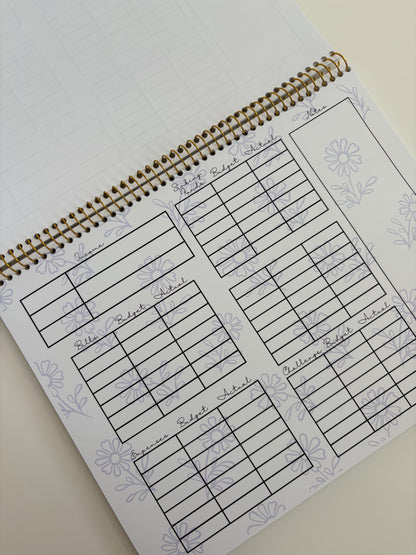 Income
Bills Budget Actual
Expenses Budget Actual
Sinking Funds Budget Actual
Challenge Budget Actual
Notes